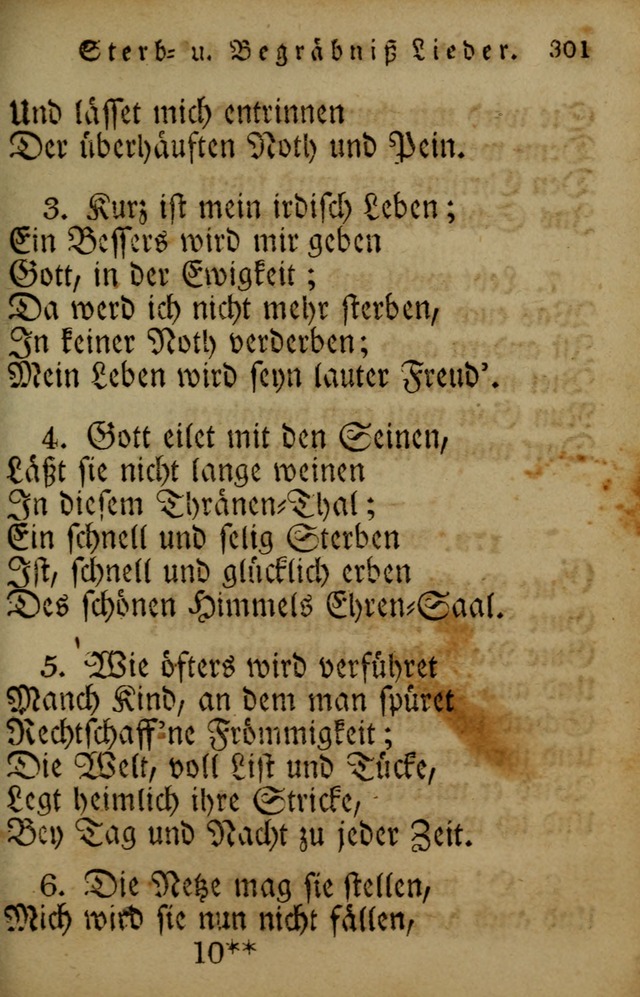 Sterb- u. Begräbniß Lieder. 301
Und lässet mich entrinnen
Der überhäuften Noth und Pein.
3. Kurz ist mein irdisch Leben;
Ein Bessers wird mir geben
Gott, in der Ewigkeit;
Da werd ich nicht mehr sterben,
In keiner Noth verderben;
Mein Leben wird seyn lauter Freud'.
4. Gott eilet mit den Seinen,
Läßt sie nicht lange weinen
In diesem Thränen-Thal;
Ein schnell und selig Sterben
Ist, schnell und glücklich erben
Des schönen Himmels Ehren-Saal.
5. Wie öfters wird verführet
Manch Kind, an dem man spüret
Rechtschaff'ne Frömmigkeit;
Die Welt, voll List und Tücke,
Legt heimlich ihre Stricke,
Bey Tag und Nacht zu jeder Zeit.
6. Die Netze mag sie stellen,
Mich wird sie nun nicht fällen,
10**